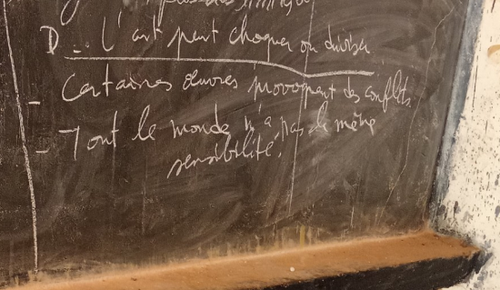 D- L'art peut choquer ou diviser
- Certaines œuvres provoquent des conflits.
- Tout le monde n'a pas la même
sensibilité.